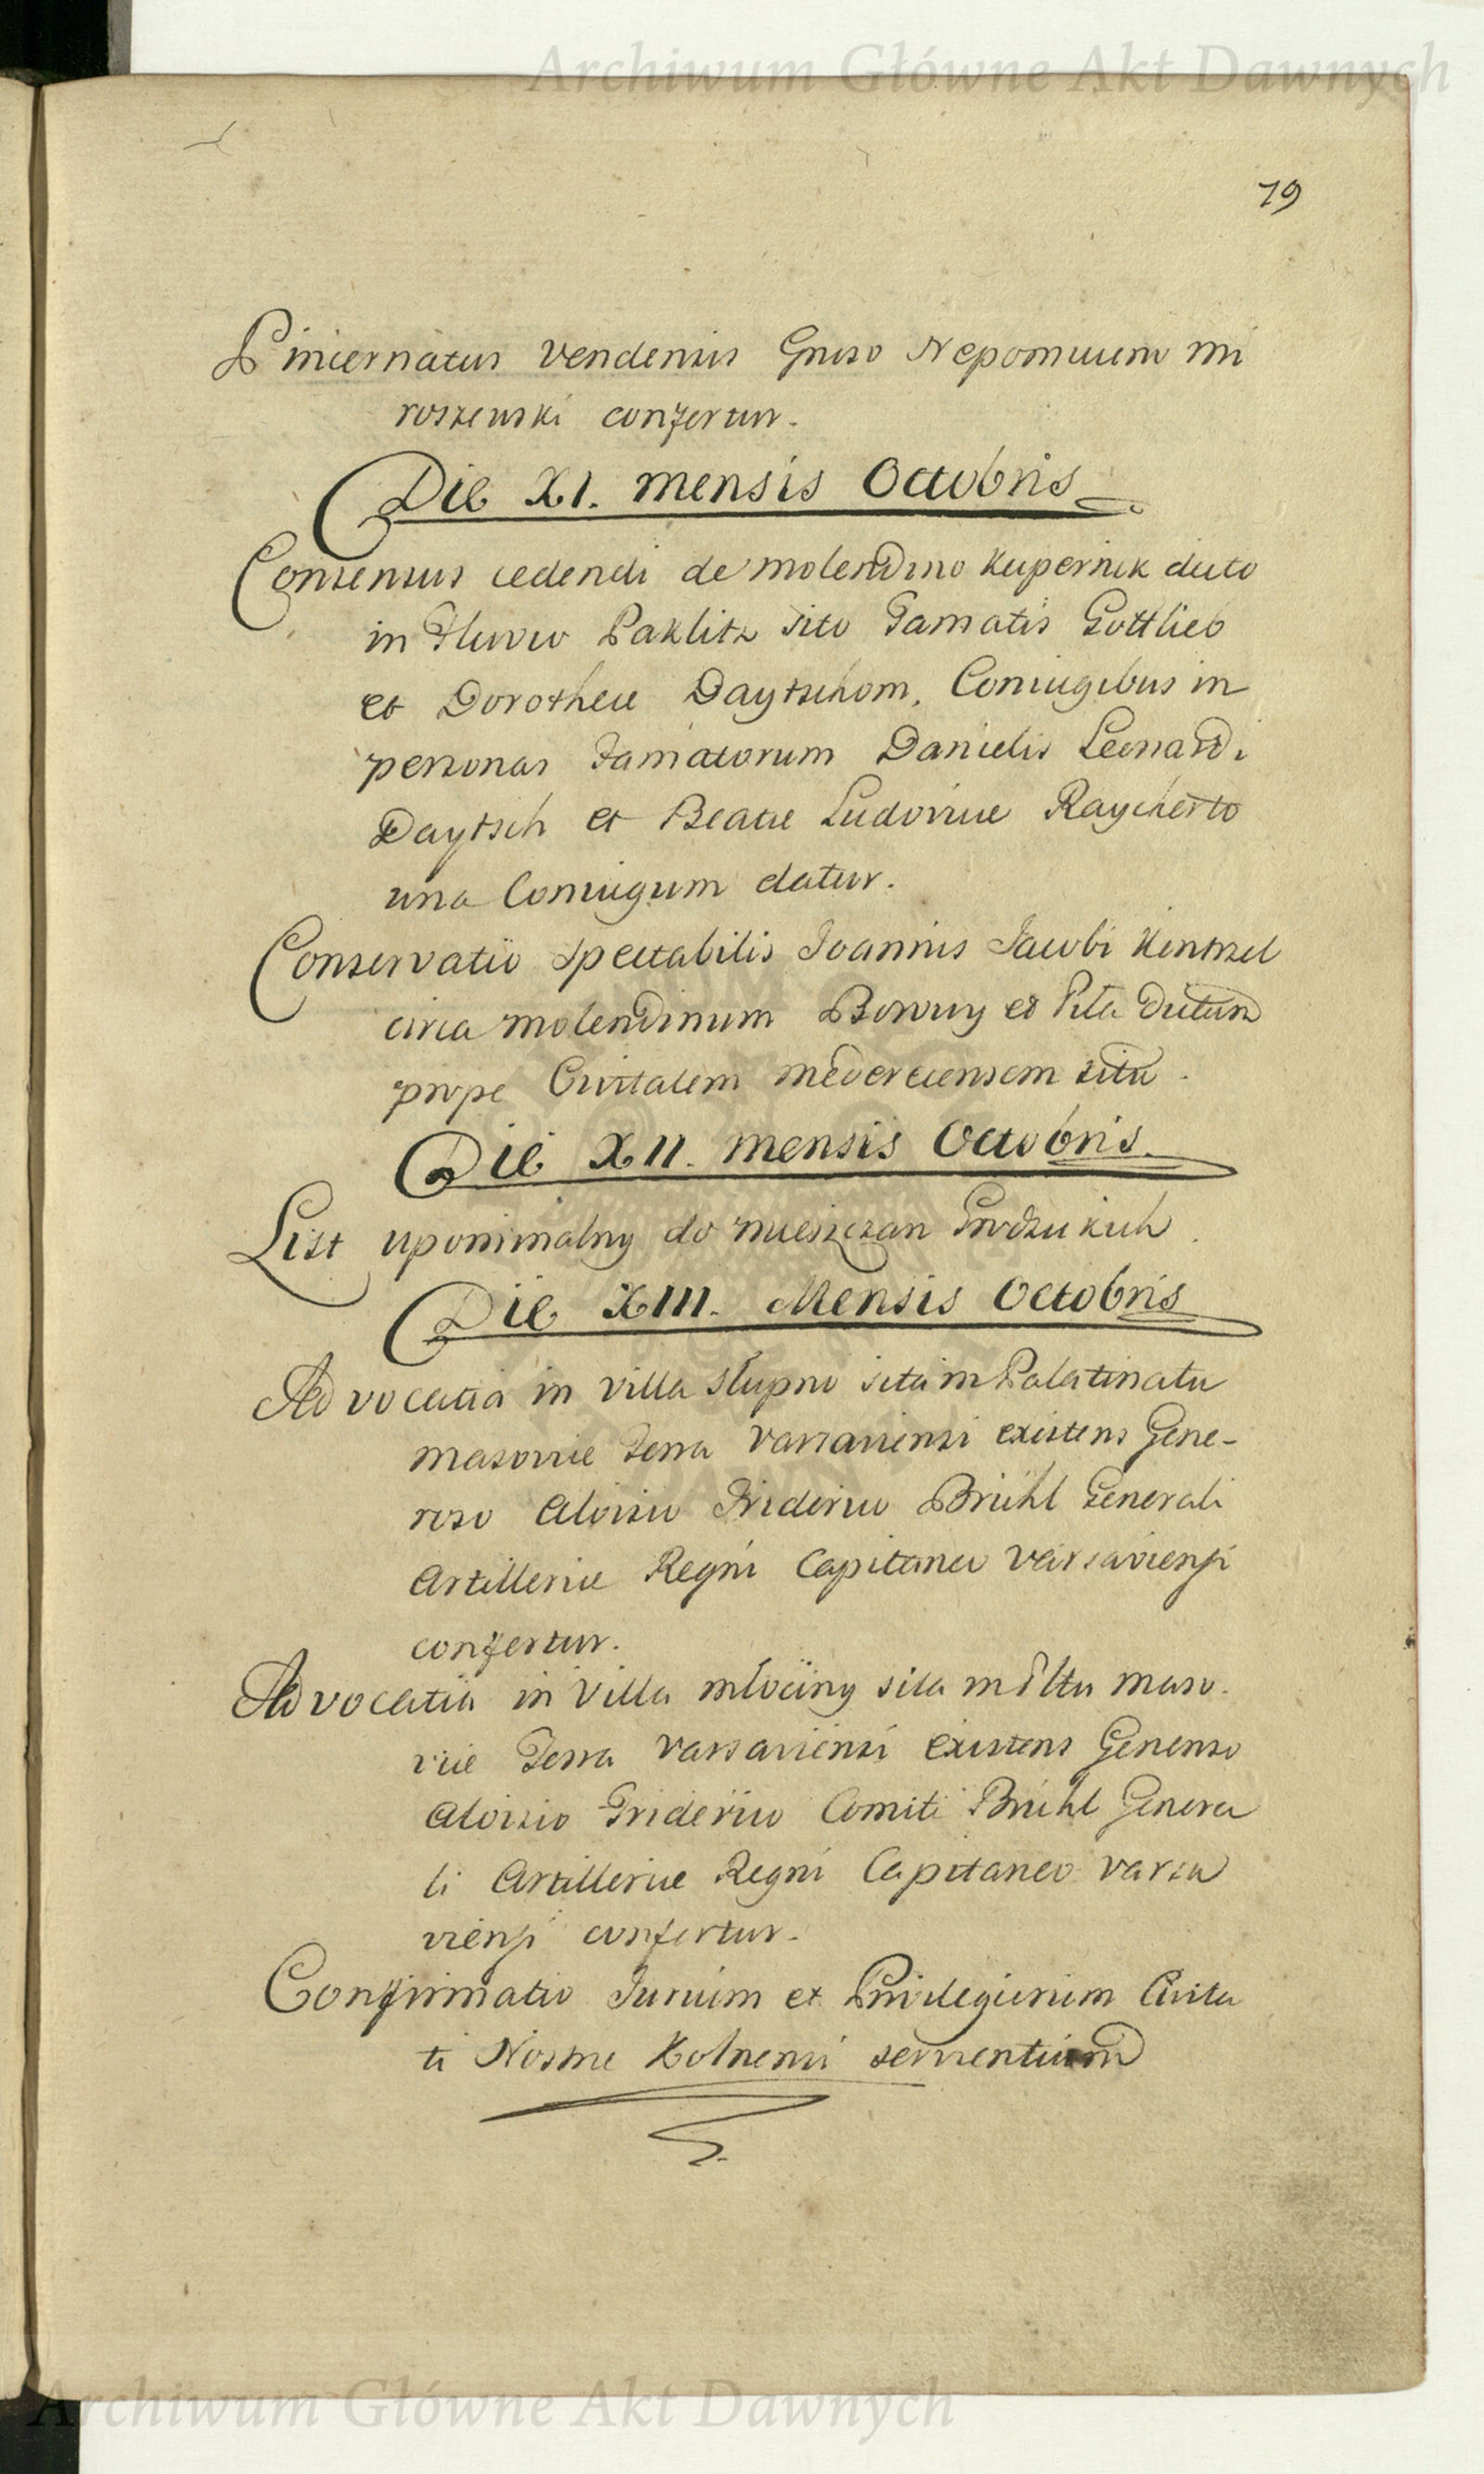 Archiwum Główne Akt Dawnych
79
Pincernatus Vendensis Gnoso Nepomuceno Mi
roszewski confertur.
Die XI. Mensis Octobris
Consensus cedendi de molendino Kupernik dicto
in Fluvio Paklitz sito Famatis Gottlieb
et Dorotheae Daytschom, Coniugibus in
personas Famatorum Danielis Leonardi
Daytsch et Beatae Ludovicae Raycherto
Coniugum datur.
Conservatio Spectabilis Joannis Jacobi Kintzel
circa molendinum Borowy et Piła dictum
prope Civitatem Mederecensem situ.
Die XII. Mensis Octobris.
List upominalny do mieszczan Grodzickich.
Die XIII. Mensis Octobris
Advocatia in Villa Słupno sita in Palatinatu
Masoviae Terra Varsaviensi existens Gene-
roso Aloisio Friderico Brühl Generali
Artilleriae Regni Capitaneo Varsaviensi
confertur.
Advocatia in Villa Młociny sita in Pltu Maso.
viae Terra Varsaviensi existens Generoso
Aloisio Friderico Comiti Brühl Genera
li Artilleriae Regni Capitaneo Varsa
viensi confertur.
Confirmatio Jurium et Privilegiorum Civita
ti Nostrae Kolnensi servientium
Archiwum Główne Akt Dawnych